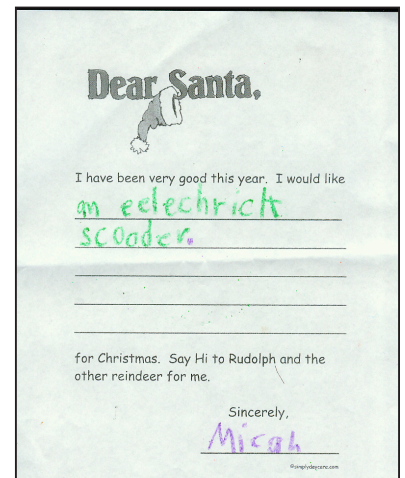 Dear Santa,
I have been very good this year. I would like
an eelechrick
scooder.
for Christmas. Say Hi to Rudolph and the
other reindeer for me.
Sincerely,
Micah
©simplydaycare.com